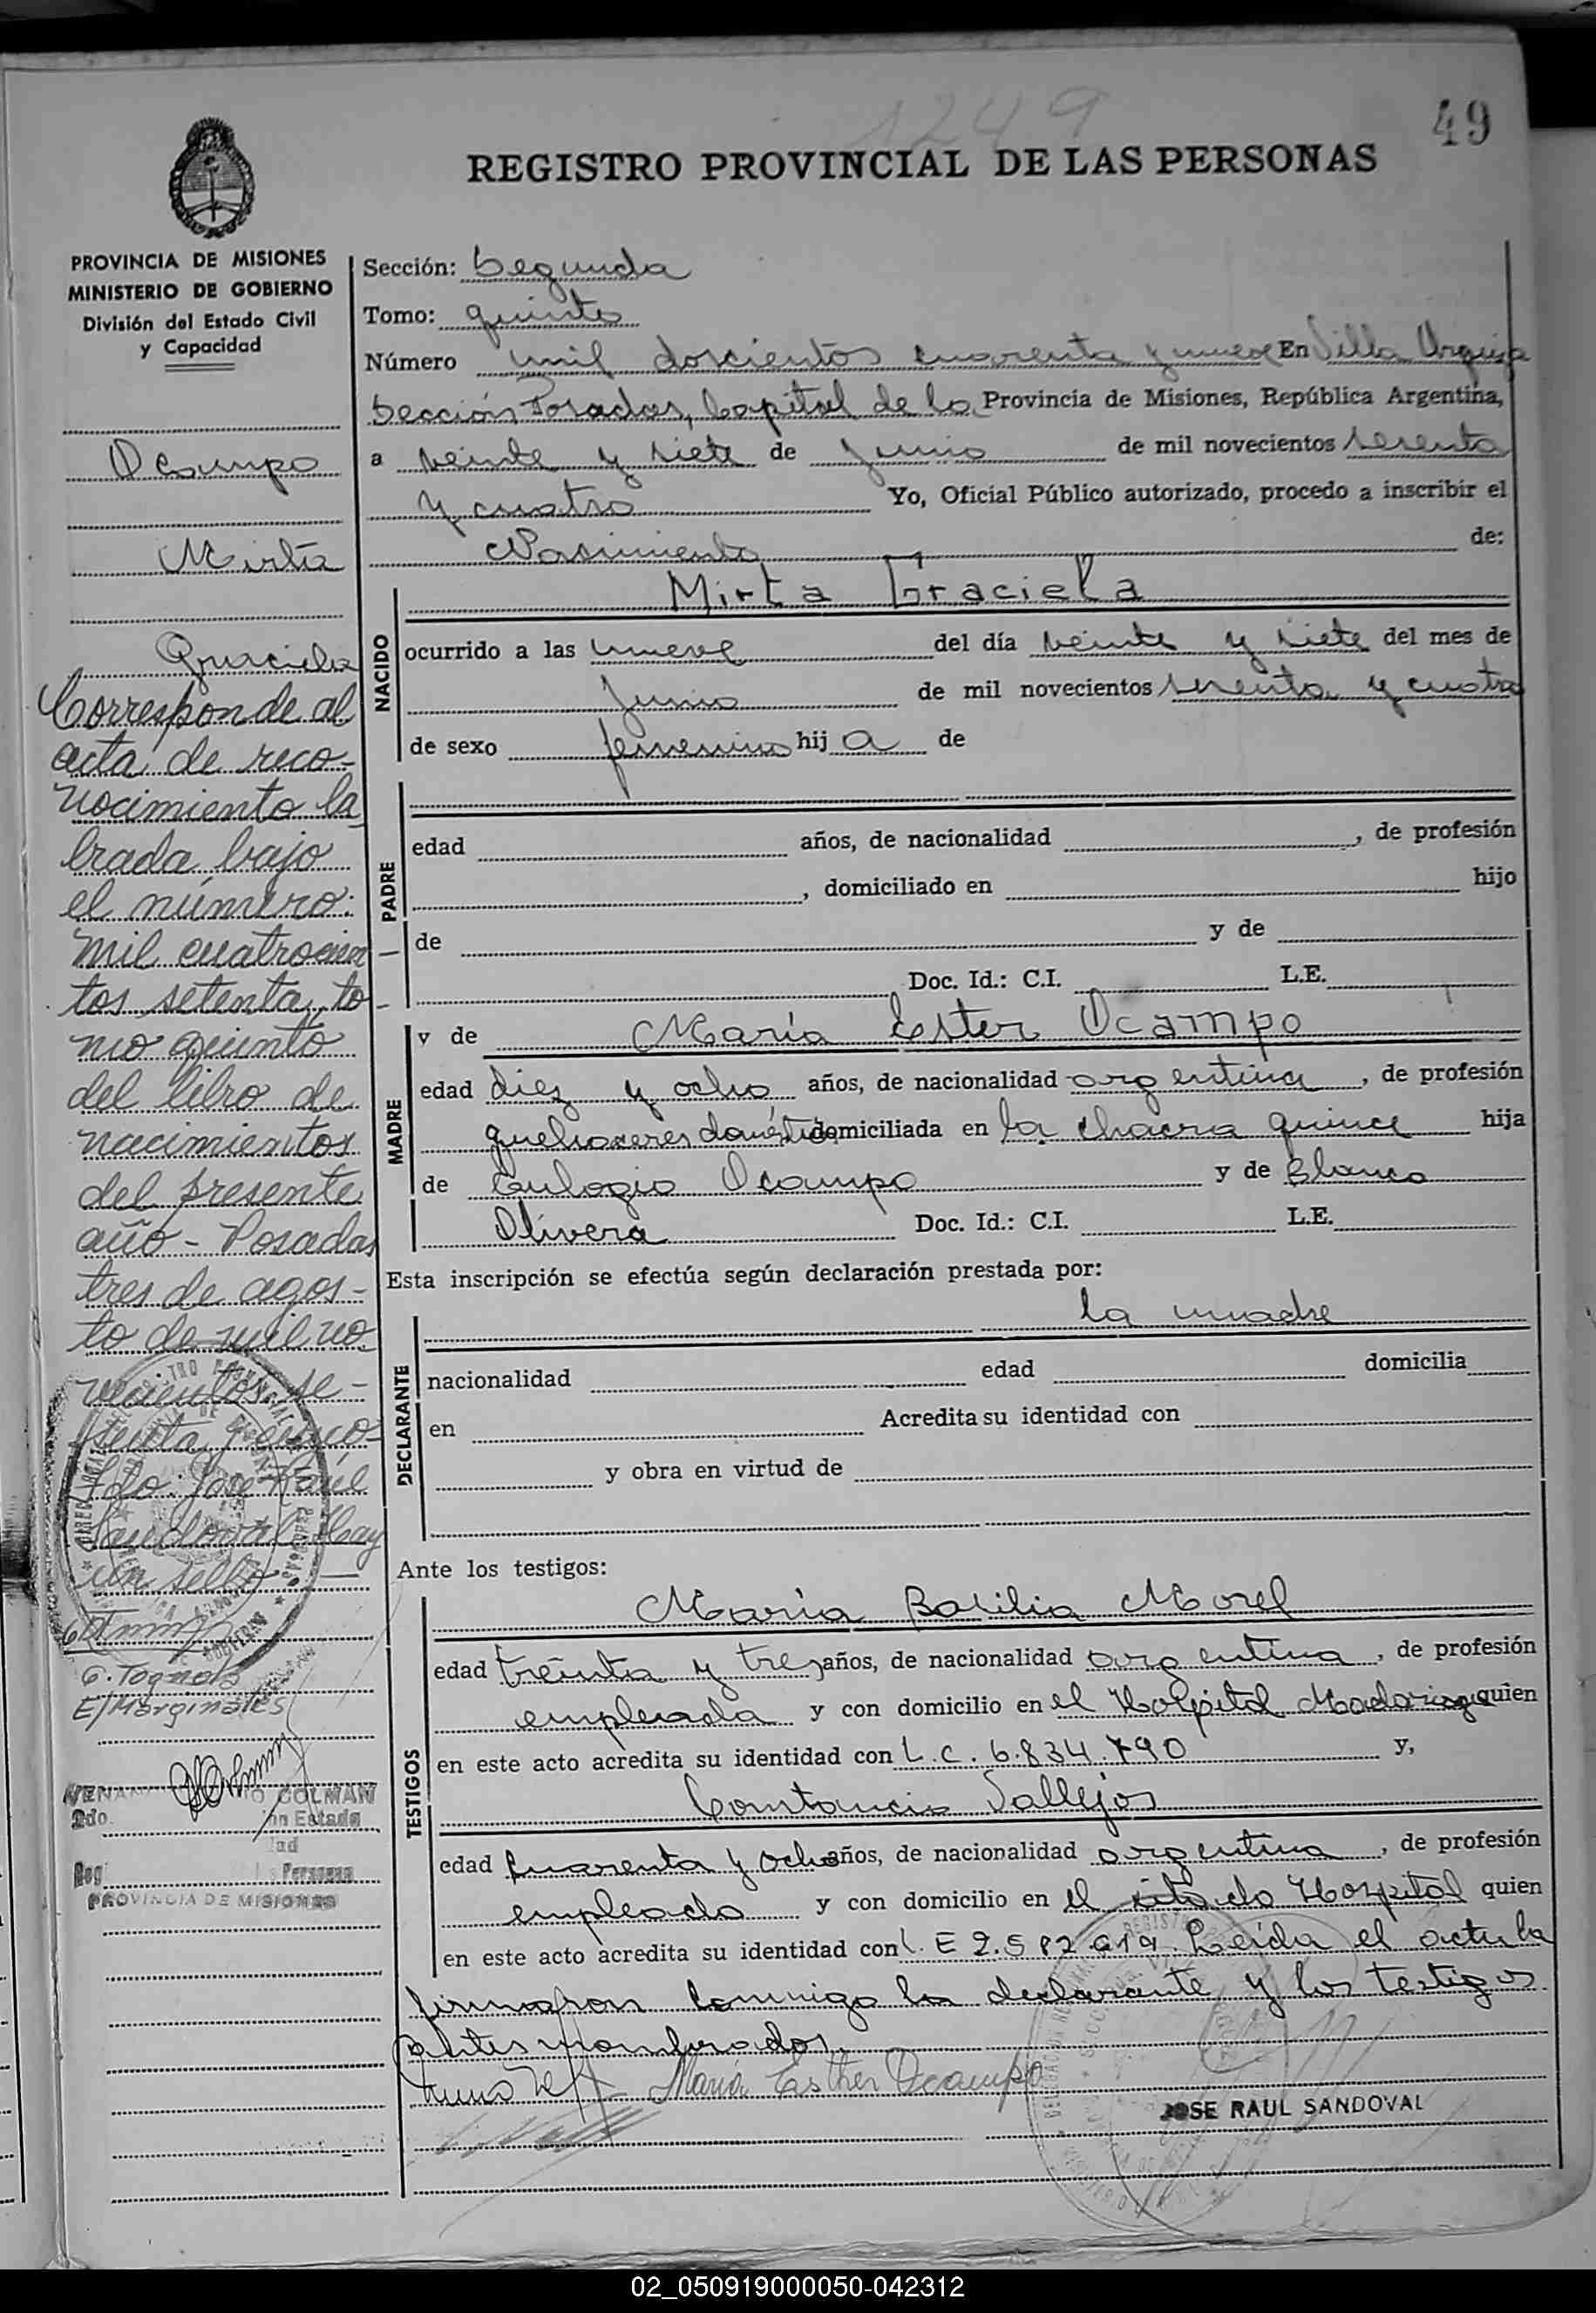 1249
49
REGISTRO PROVINCIAL DE LAS PERSONAS
PROVINCIA DE MISIONES
MINISTERIO DE GOBIERNO
División del Estado Civil
y Capacidad
Ocampo
Mirta
Graciela
Corresponde al
acta de reco-
nocimiento la
brada bajo
el número:
mil cuatrocien
tos setenta, to-
mo quinto
del libro de
nacimientos
del presente
año - Posadas
tres de agos-
to de mil no-
vecientos se-
tenta y cinco
Fdo: José Raúl
Sandoval. Hay
un sello. —
G. Tognola
E/Marginales
COLMAN
2do.
Estado
Reg
Personas
PROVINCIA DE MISIONES
Sección: Segunda
Tomo: quinto
Número mil doscientos cuarenta y nueve En Villa Urquiza
Sección Posadas, Capital de la Provincia de Misiones, República Argentina,
a veinte y siete de junio de mil novecientos sesenta
y cuatro Yo, Oficial Público autorizado, procedo a inscribir el
Nacimiento de:
NACIDO
Mirta Graciela
ocurrido a las nueve del día veinte y siete del mes de
junio de mil novecientos sesenta y cuatro
de sexo femenino hij a de
PADRE
edad años, de nacionalidad , de profesión
, domiciliado en hijo
de y de
Doc. Id.: C.I. L.E.
MADRE
y de María Ester Ocampo
edad diez y ocho años, de nacionalidad argentina , de profesión
quehaceres domésticos domiciliada en la chacra quince hija
de Eulogio Ocampo y de Blanca
Olivera Doc. Id.: C.I. L.E.
Esta inscripción se efectúa según declaración prestada por:
DECLARANTE
la madre
nacionalidad edad domicilia
en Acredita su identidad con
y obra en virtud de
Ante los testigos:
TESTIGOS
María Basilia Morel
edad treinta y tres años, de nacionalidad argentina , de profesión
empleada y con domicilio en el Hospital Madariaga quien
en este acto acredita su identidad con L.C. 6.834.790 y,
Constancio Vallejos
edad cuarenta y ocho años, de nacionalidad argentina , de profesión
empleado y con domicilio en el citado Hospital quien
en este acto acredita su identidad con L.E 2.582.619. Leída el acta la
firmaron conmigo la declarante y los testigos
antes nombrados.
María Esther Ocampo
JOSE RAUL SANDOVAL
02_050919000050-042312